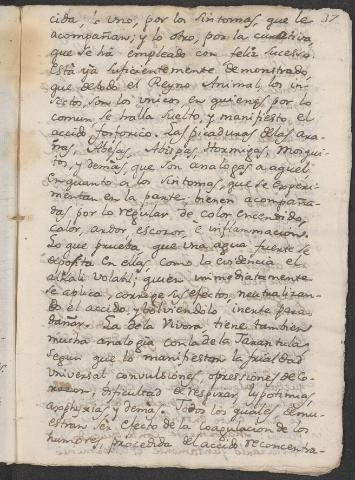 37.
cida, lo uno, por los sintomas, que le
acompañan; y lo otro, por la curativa,
que se há empleado con feliz sucesso.
Està ya suficientemente demonstrado,
que de todo el Reyno Animal los in-
sectos, son los unicos, en quienes, por lo
comun, se halla suelto, y manifiesto, el
accido fosforico. Las picaduras de las ara-
ñas, Abejas, Abispas, Hormigas, Mosqui-
tos, y demàs, que son analogas a aquel:
En quanto a los sintomas, que se experi-
mentan en la parte, vienen acompaña-
das, por lo regular, de calor, encendido,
calor, ardor, escozor, e inflammacion.
Lo que prueba, que una agua fuerte se
deposita en ellas, como lo evidencia el
alkali volatil; quien immediatamente
se aplica, corrige su efecto, neutralizan-
do el accido, y bolviendolo, inerte para
dañar. La de la Vivora, tiene tambien
mucha analogia con la de la Tarantula
segun que lo manifiestan la frialdad
universal convulsiones, opressiones de Co-
razon, dificultad de respirar, lypotimias,
asphyxias, y demàs. Todos los quales, demu-
estran ser efecto de la coagulacion de los
humores, procedida del accido reconcentra-